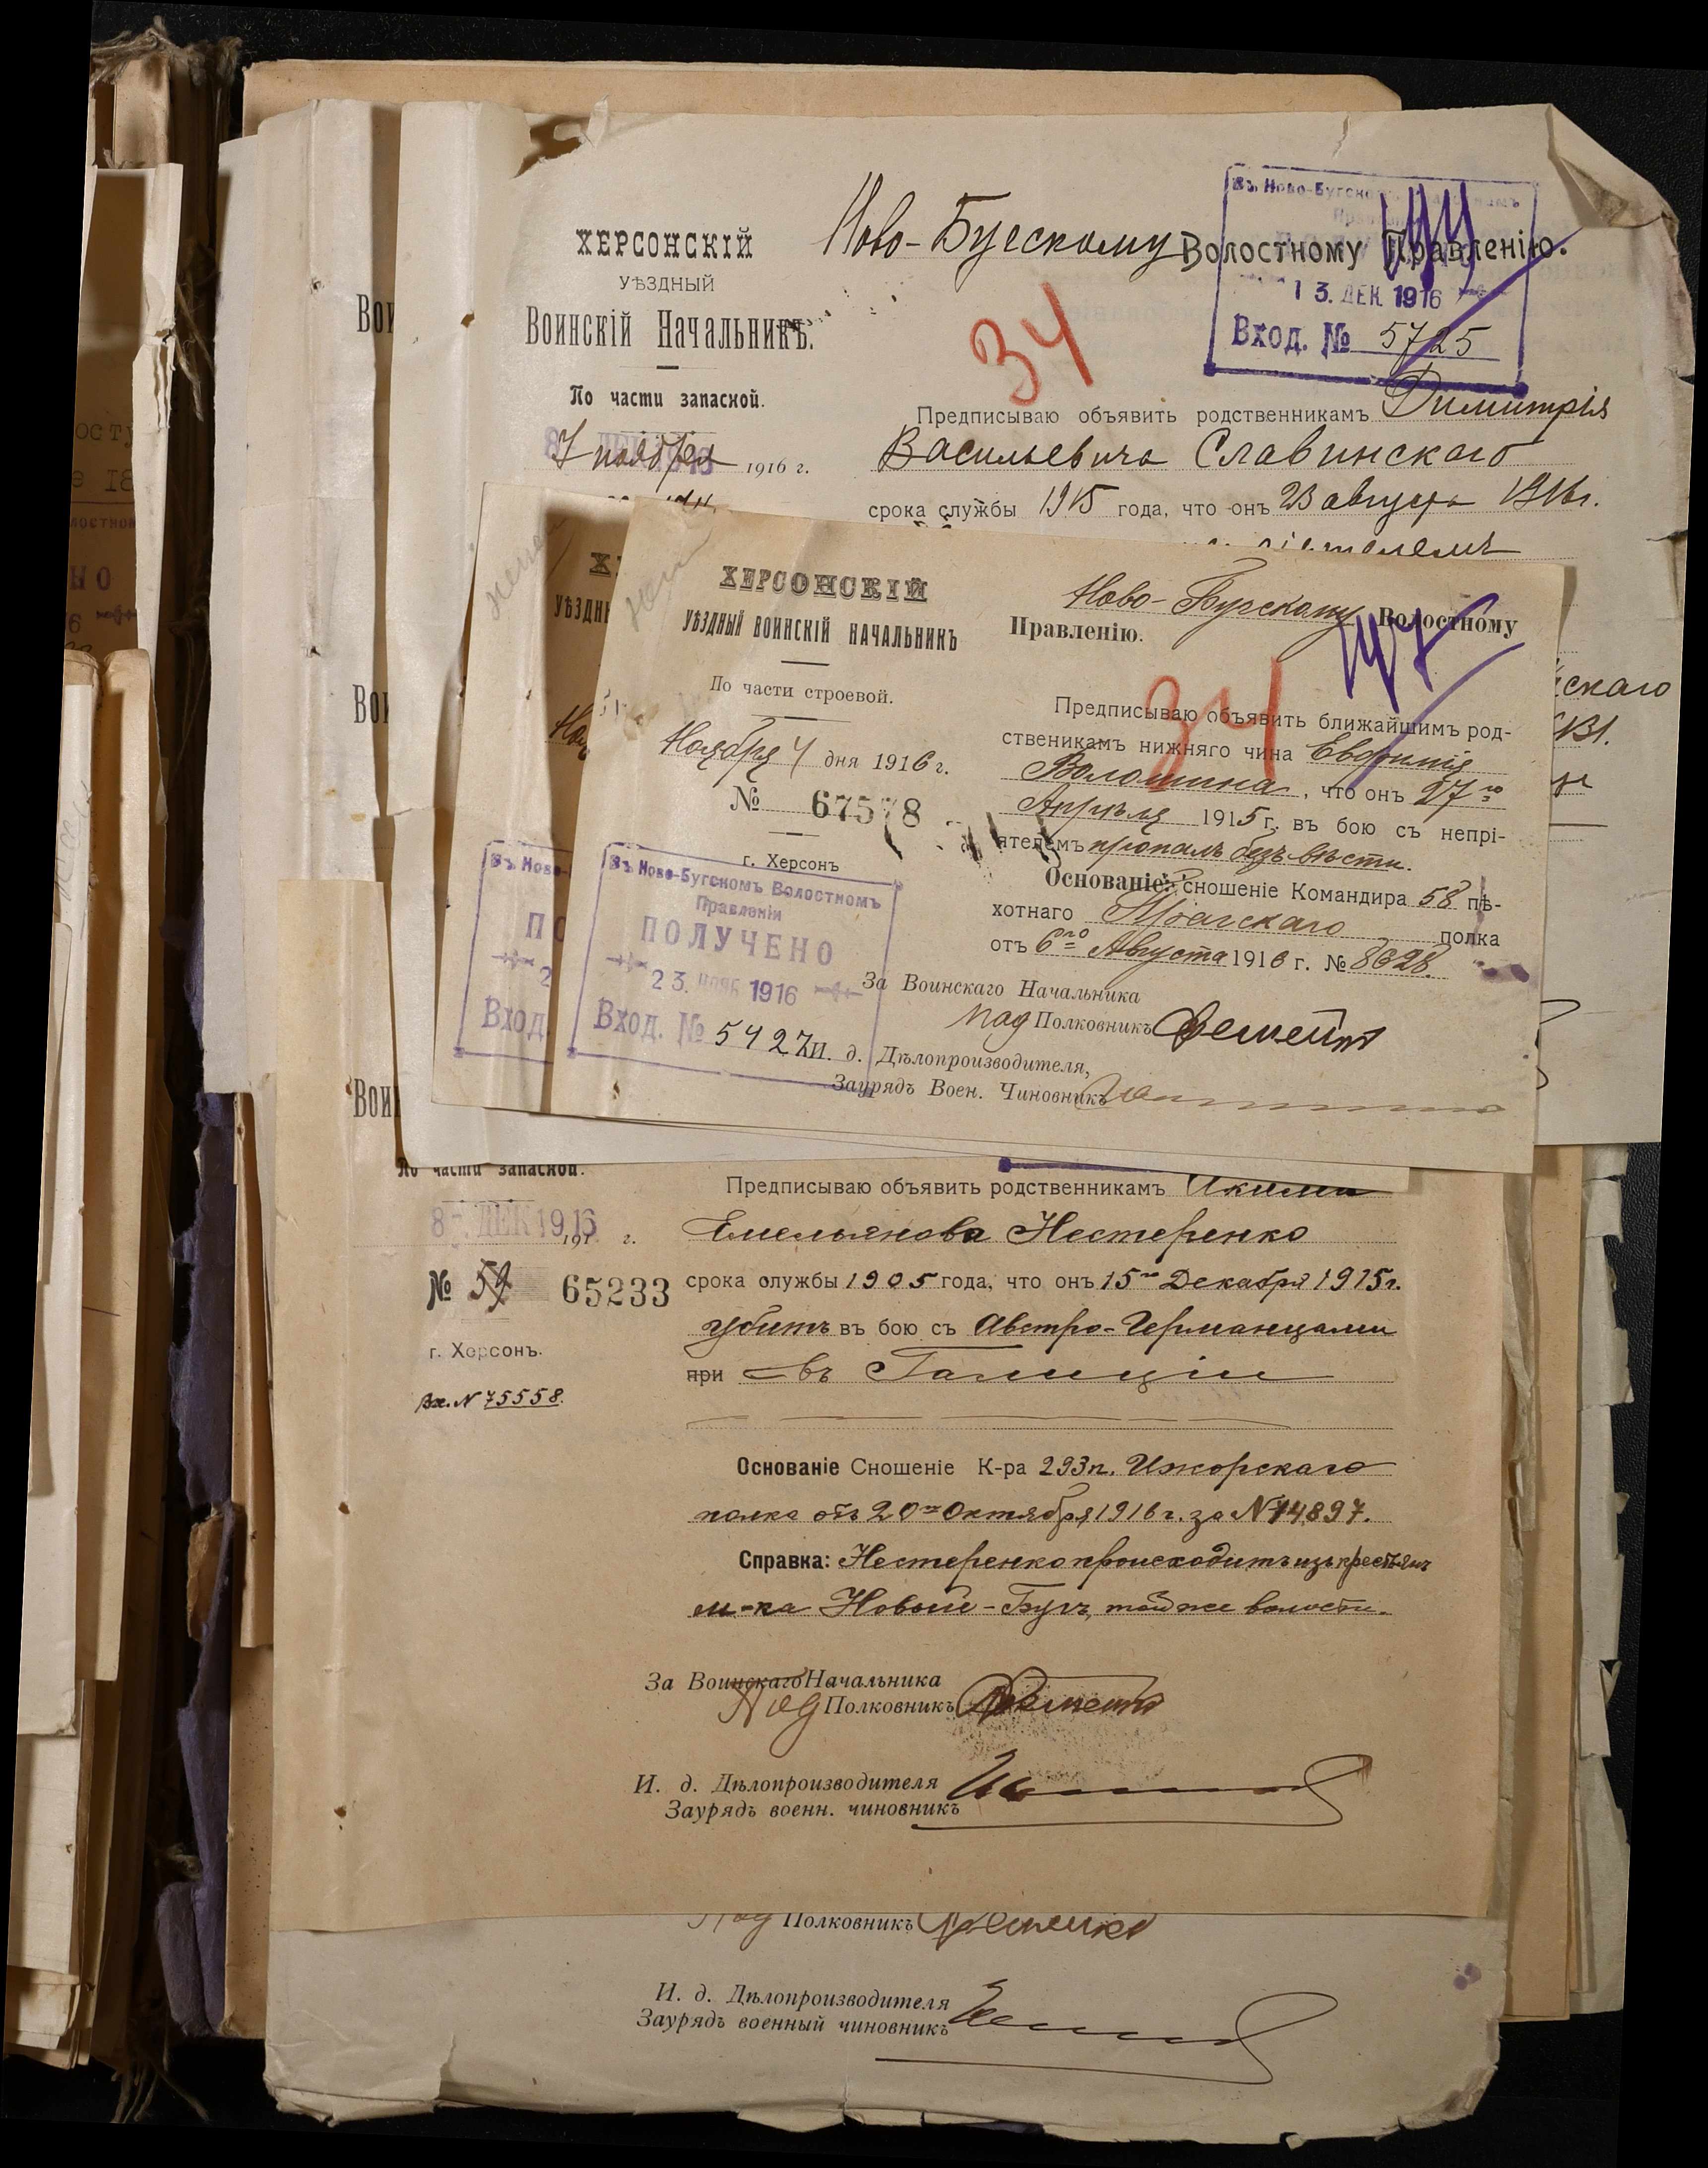 ХЕРСОНСКІЙ
УѢЗДНЫЙ
ВОИНСКІЙ НАЧАЛЬНИКЪ.
По части запасной.
7 ноября 1916 г.
Ново-Бугскому Волостному Правленію.
34
13. ДЕК. 1916
Вход. № 5725
Предписываю объявить родственникамъ Димитрія
Васильевича Славинскаго
срока службы 1915 года, что онъ 23 августа 1916г.
ХЕРСОНСКІЙ
УѢЗДНЫЙ ВОИНСКІЙ НАЧАЛЬНИКЪ
По части строевой.
Ноября 4 дня 1916 г.
№ 67578
г. Херсонъ
Въ Ново-Бугскомъ Волостномъ
Правленіи
ПОЛУЧЕНО
23. НОЯБ 1916
Вход. № 5427
Ново-Бугскому Волостному
Правленію.
34
Предписываю объявить ближайшимъ род-
ственикамъ нижняго чина Евфимія
Волошина, что онъ 27го
Апрѣля 1915 г. въ бою съ непрі-
ятелемъ пропалъ безъ вѣсти.
Основаніе: Сношеніе Командира 58 пѣ-
хотнаго Прагскаго полка
отъ 6го Августа 1916 г. № 8628.
За Воинскаго Начальника
Под Полковникъ
И. д. Дѣлопроизводителя,
Заурядъ Воен. Чиновникъ
По части запасной.
8 ДЕК 1916
191 г.
№ 65233
г. Херсонъ.
Вх. N 75558.
Предписываю объявить родственникамъ Акима
Емельянова Нестеренко
срока службы 1905 года, что онъ 15го Декабря 1915г.
убитъ въ бою съ Австро-Германцами
при въ Галиціи
Основаніе Сношеніе К-ра 293 п. Ижорскаго
полка отъ 20го Октября 1916 г. за N 14897.
Справка: Нестеренко происходитъ изъ крестьянъ
м-ка Новый-Бугъ, той же волости.
За Воинскаго Начальника
Под Полковникъ
И. д. Дѣлопроизводителя
Заурядъ военн. чиновникъ
Под Полковникъ
И. д. Дѣлопроизводителя
Заурядъ военный чиновникъ